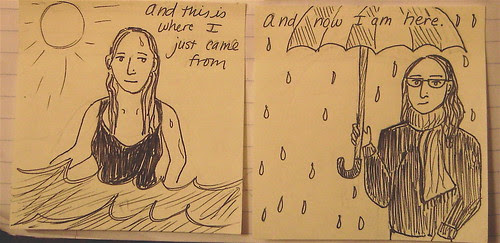 And this is
where I
just came
from
And now I am here.